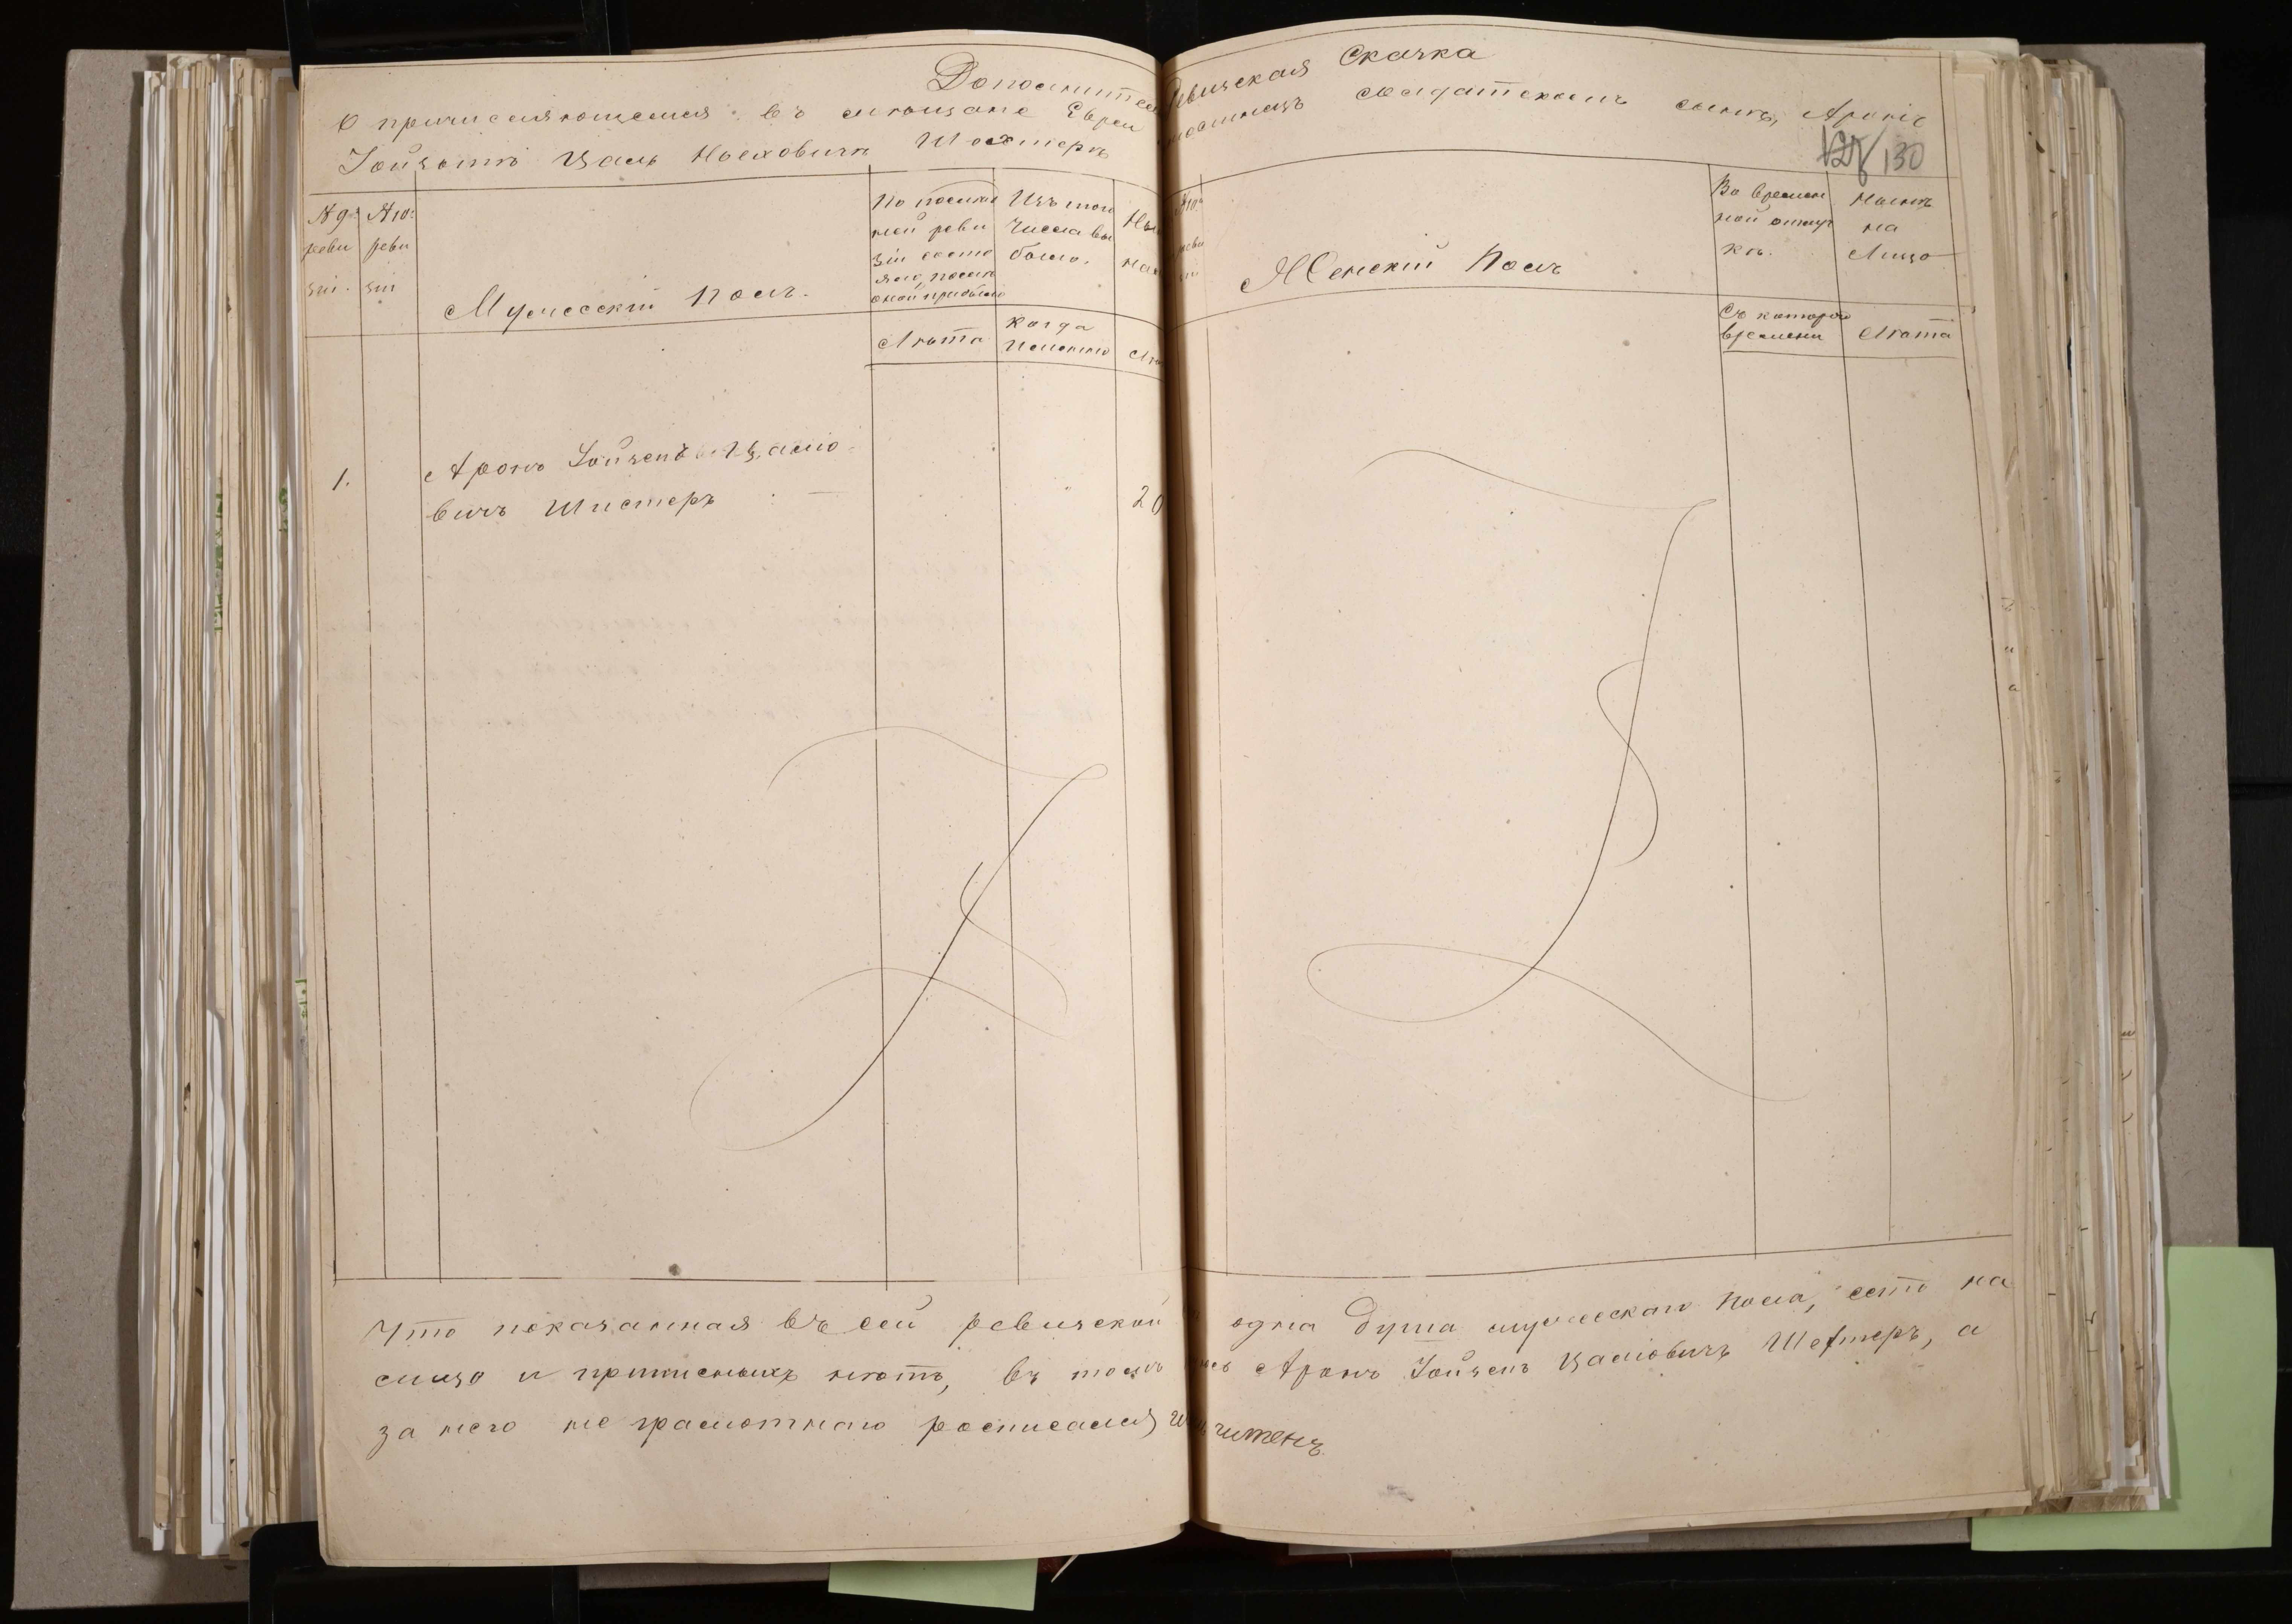 Дополнител ревизская Скачка
О причисляющемся въ мѣщане Еврей солдатскомъ сынѣ, Аронѣ
Іойзепѣ Цаль Носховичѣ Шохтерѣ
130
№ 9. реви зіи.
№ 10. реви зіи
Мужескій Полъ.
По послѣд ней реви зіи состо яло, послѣ оной прибыло
Лѣта
Изъ того числа вы было.
Когда именно
Ны на
Лѣ
№ 10. реви зіи
Женскій Полъ
Во времен ной отлуч кѣ.
Съ котораго времени
Нынѣ на Лицо
Лѣта
1.
Аронъ Іойзепъ Цаліо
вичъ Шистеръ
20
Что показанная въ сей ревизской одна душа мужескаго пола, есть на
лицо и прописныхъ нѣтъ, въ томъ Аронъ Іойзепъ Цаліовичъ Шехтеръ, а
за него не грамотнаго росписался